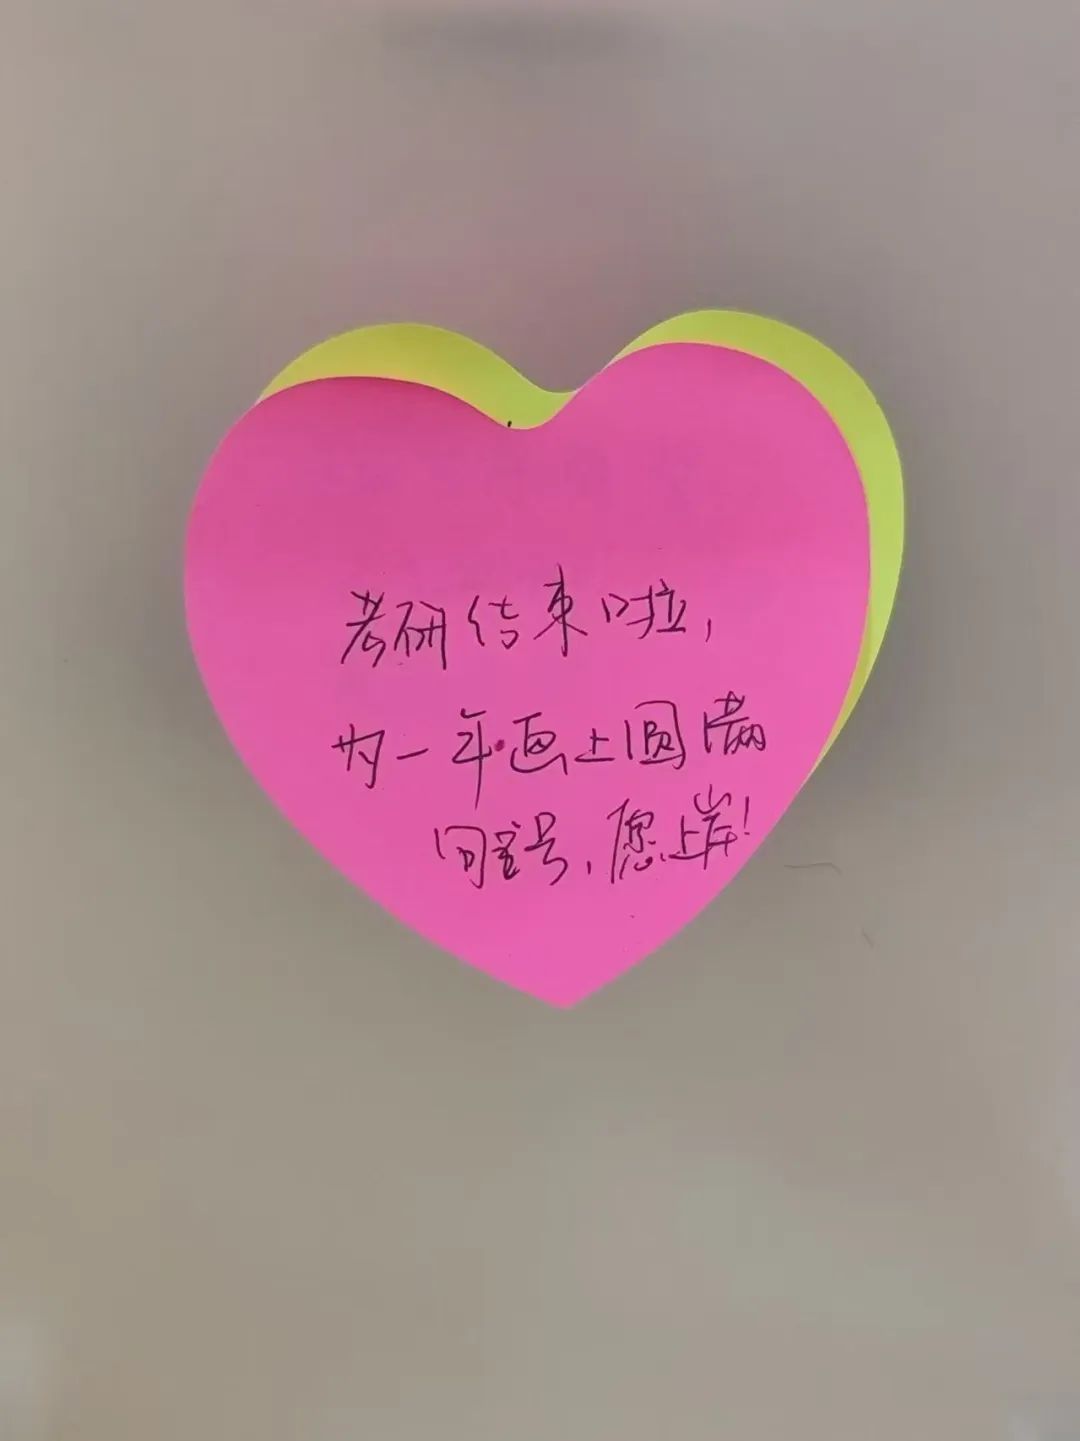 考研结束啦，
为一年画上圆满
同号，愿上岸！